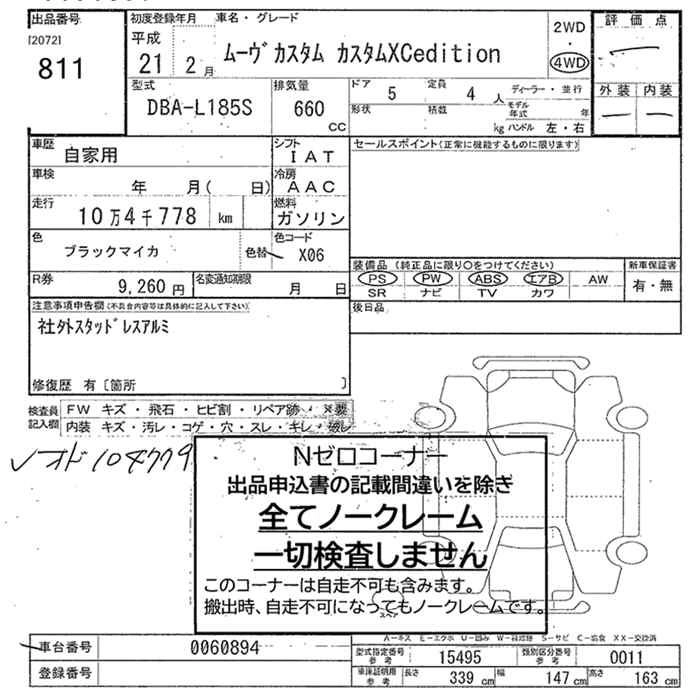 出品番号
[2072]
811
初度登録年月
平成
21 2 月
車名・グレード
ムーヴカスタム カスタムXCedition
2WD
・
4WD
評価点
外装 内装
型式
DBA-L185S
排気量
660
CC
ドア 5 定員 4 人 ディーラー・並行
形状 積数 モデル年式 年
kg ハンドル 左・右
車歴 自家用
シフト IAT
車検 年 月( 日)
冷房 AAC
走行 10万4千778 km
燃料 ガソリン
色 ブラックマイカ
色替
色コード X06
R券 9,260 円
名変通知期限 月 日
セールスポイント(正常に機能するものに限ります)
装備品(純正品に限り○をつけてください)
PS PW ABS エアB AW
SR ナビ TV カワ
新車保証書
有・無
後日品
注意事項申告欄(不具合内容等は具体的に記入して下さい)
社外スタッドレスアルミ
修復歴 有〔箇所 〕
検査員記入欄
FW キズ・飛石・ヒビ割・リペア跡・X要
内装 キズ・汚レ・コゲ・穴・スレ・キレ・破レ
オド104779
Nゼロコーナー
出品申込書の記載間違いを除き
全てノークレーム
一切検査しません
このコーナーは自走不可も含みます。
搬出時、自走不可になってもノークレームです。
スペア
A－キズ E－エクボ U－凹み W－補修跡 S－サビ C－腐食 XX－交換済
車台番号 0060894
登録番号
型式指定番号 参考 15495
類別区分番号 参考 0011
車庫証明用 参考 長さ 339 cm 幅 147 cm 高さ 163 cm